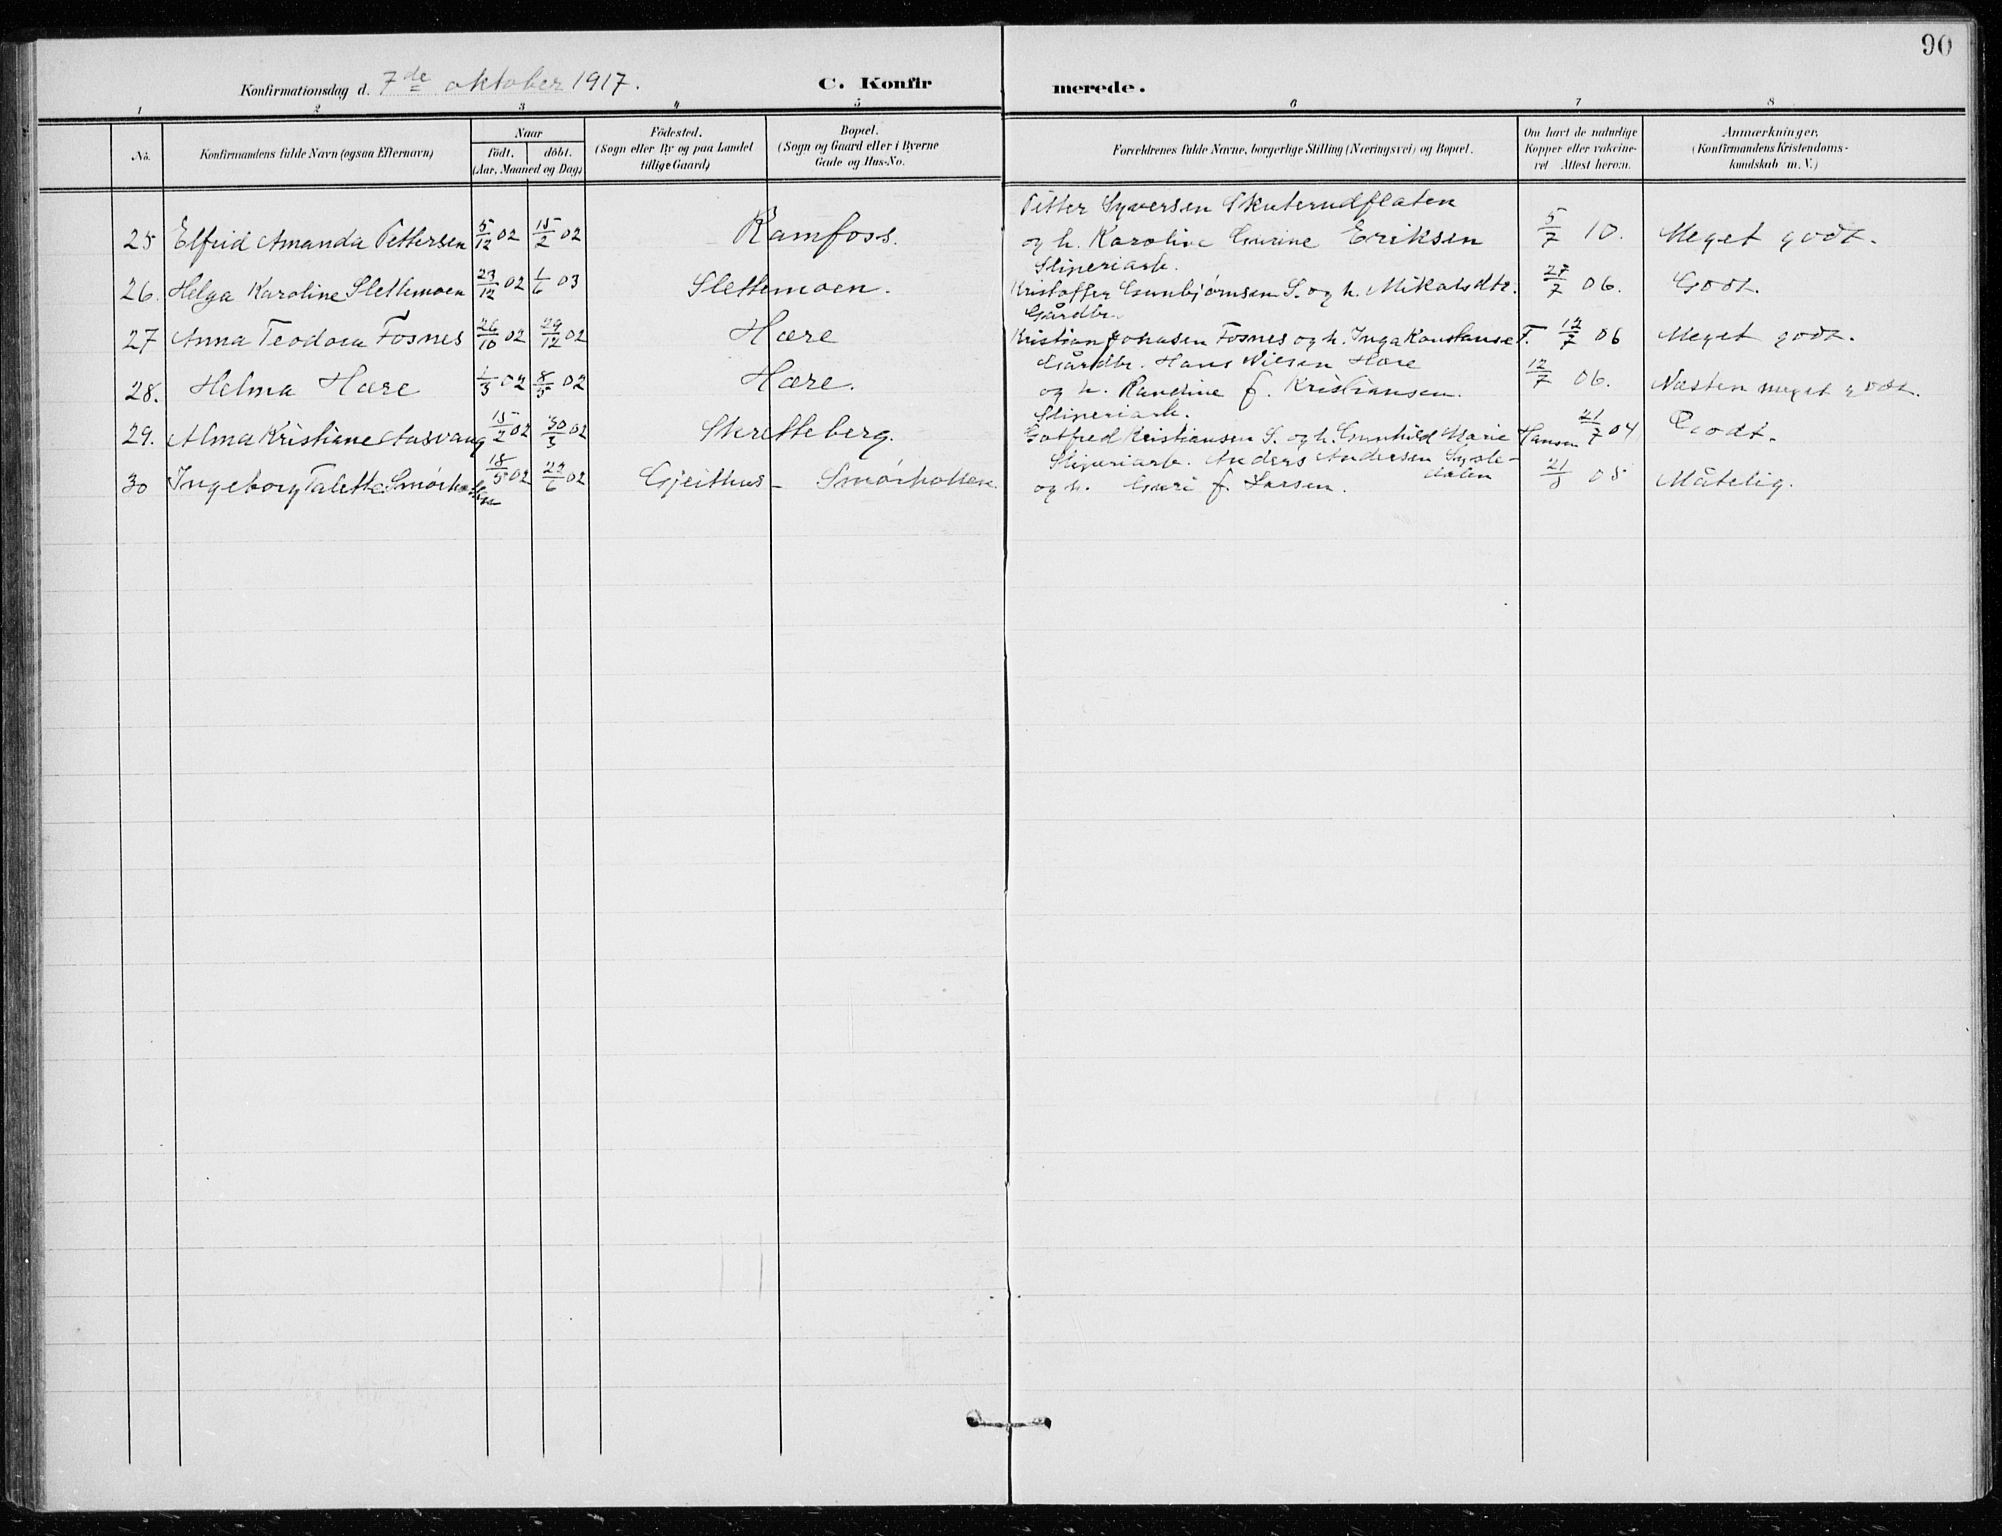 90
Konfirmationsdag d. 7de oktober 1917. C. Konfirmerede.
1 2 3 4 5 6 7 8
No. Konfirmandens fulde Navn (ogsaa Efternavn) Naar född. döbt. (Aar, Maaned og Dag) Födested. (Sogn eller By og paa Landet tillige Gaard) Bopæl. (Sogn og Gaard eller i Byerne Gade og Hus-No. Forældrenes fulde Navne, borgerlige Stilling (Næringsvei) og Bopæl. Om havt de naturlige Kopper eller vakcineret Attest herom. Anmærkninger. (Konfirmandens Kristendomskundskab m. V.)
Petter Syversen Skuterudflaten
25 Elfrid Amanda Pettersen 5/12 02 15/2 02 Ramfoss. og h. Karoline Gurine Eriksen 5/7 10. Meget godt.
Sliperiarb.
26. Helga Karoline Slettemoen 23/12 02 1/6 03 Slettemoen. Kristoffer Gunbjørnsen S. og h. Mikalsdtr. 27/7 06. Godt.
Gårdbr.
27 Anna Teodora Fosnes 26/10 02 29/12 02 Hære Kristian Johasen Fosnes og h. Inga Konstanse F. 12/7 06 Meget godt.
Gårdbr. Hans Nilsen Hære
28. Helma Hære 1/3 02 8/5 02 Hære. og h. Randine f. Kristiansen. 12/7 06. Næsten meget godt.
Sliperiarb.
29. Alma Kristiane Aasvang 15/2 02 30/3 02 Skretteberg. Gotfred Kristiansen S. og h. Gunhild Marie Hansen 21/7 04 Godt.
Sliperiarb. Anders Andersen Sysledalen
30 Ingeborg Talette Smørholten 18/5 02 22/6 02 Gjeithus - Smørholten og h. Guri f. Larsen. 21/8 05 Måtelig.